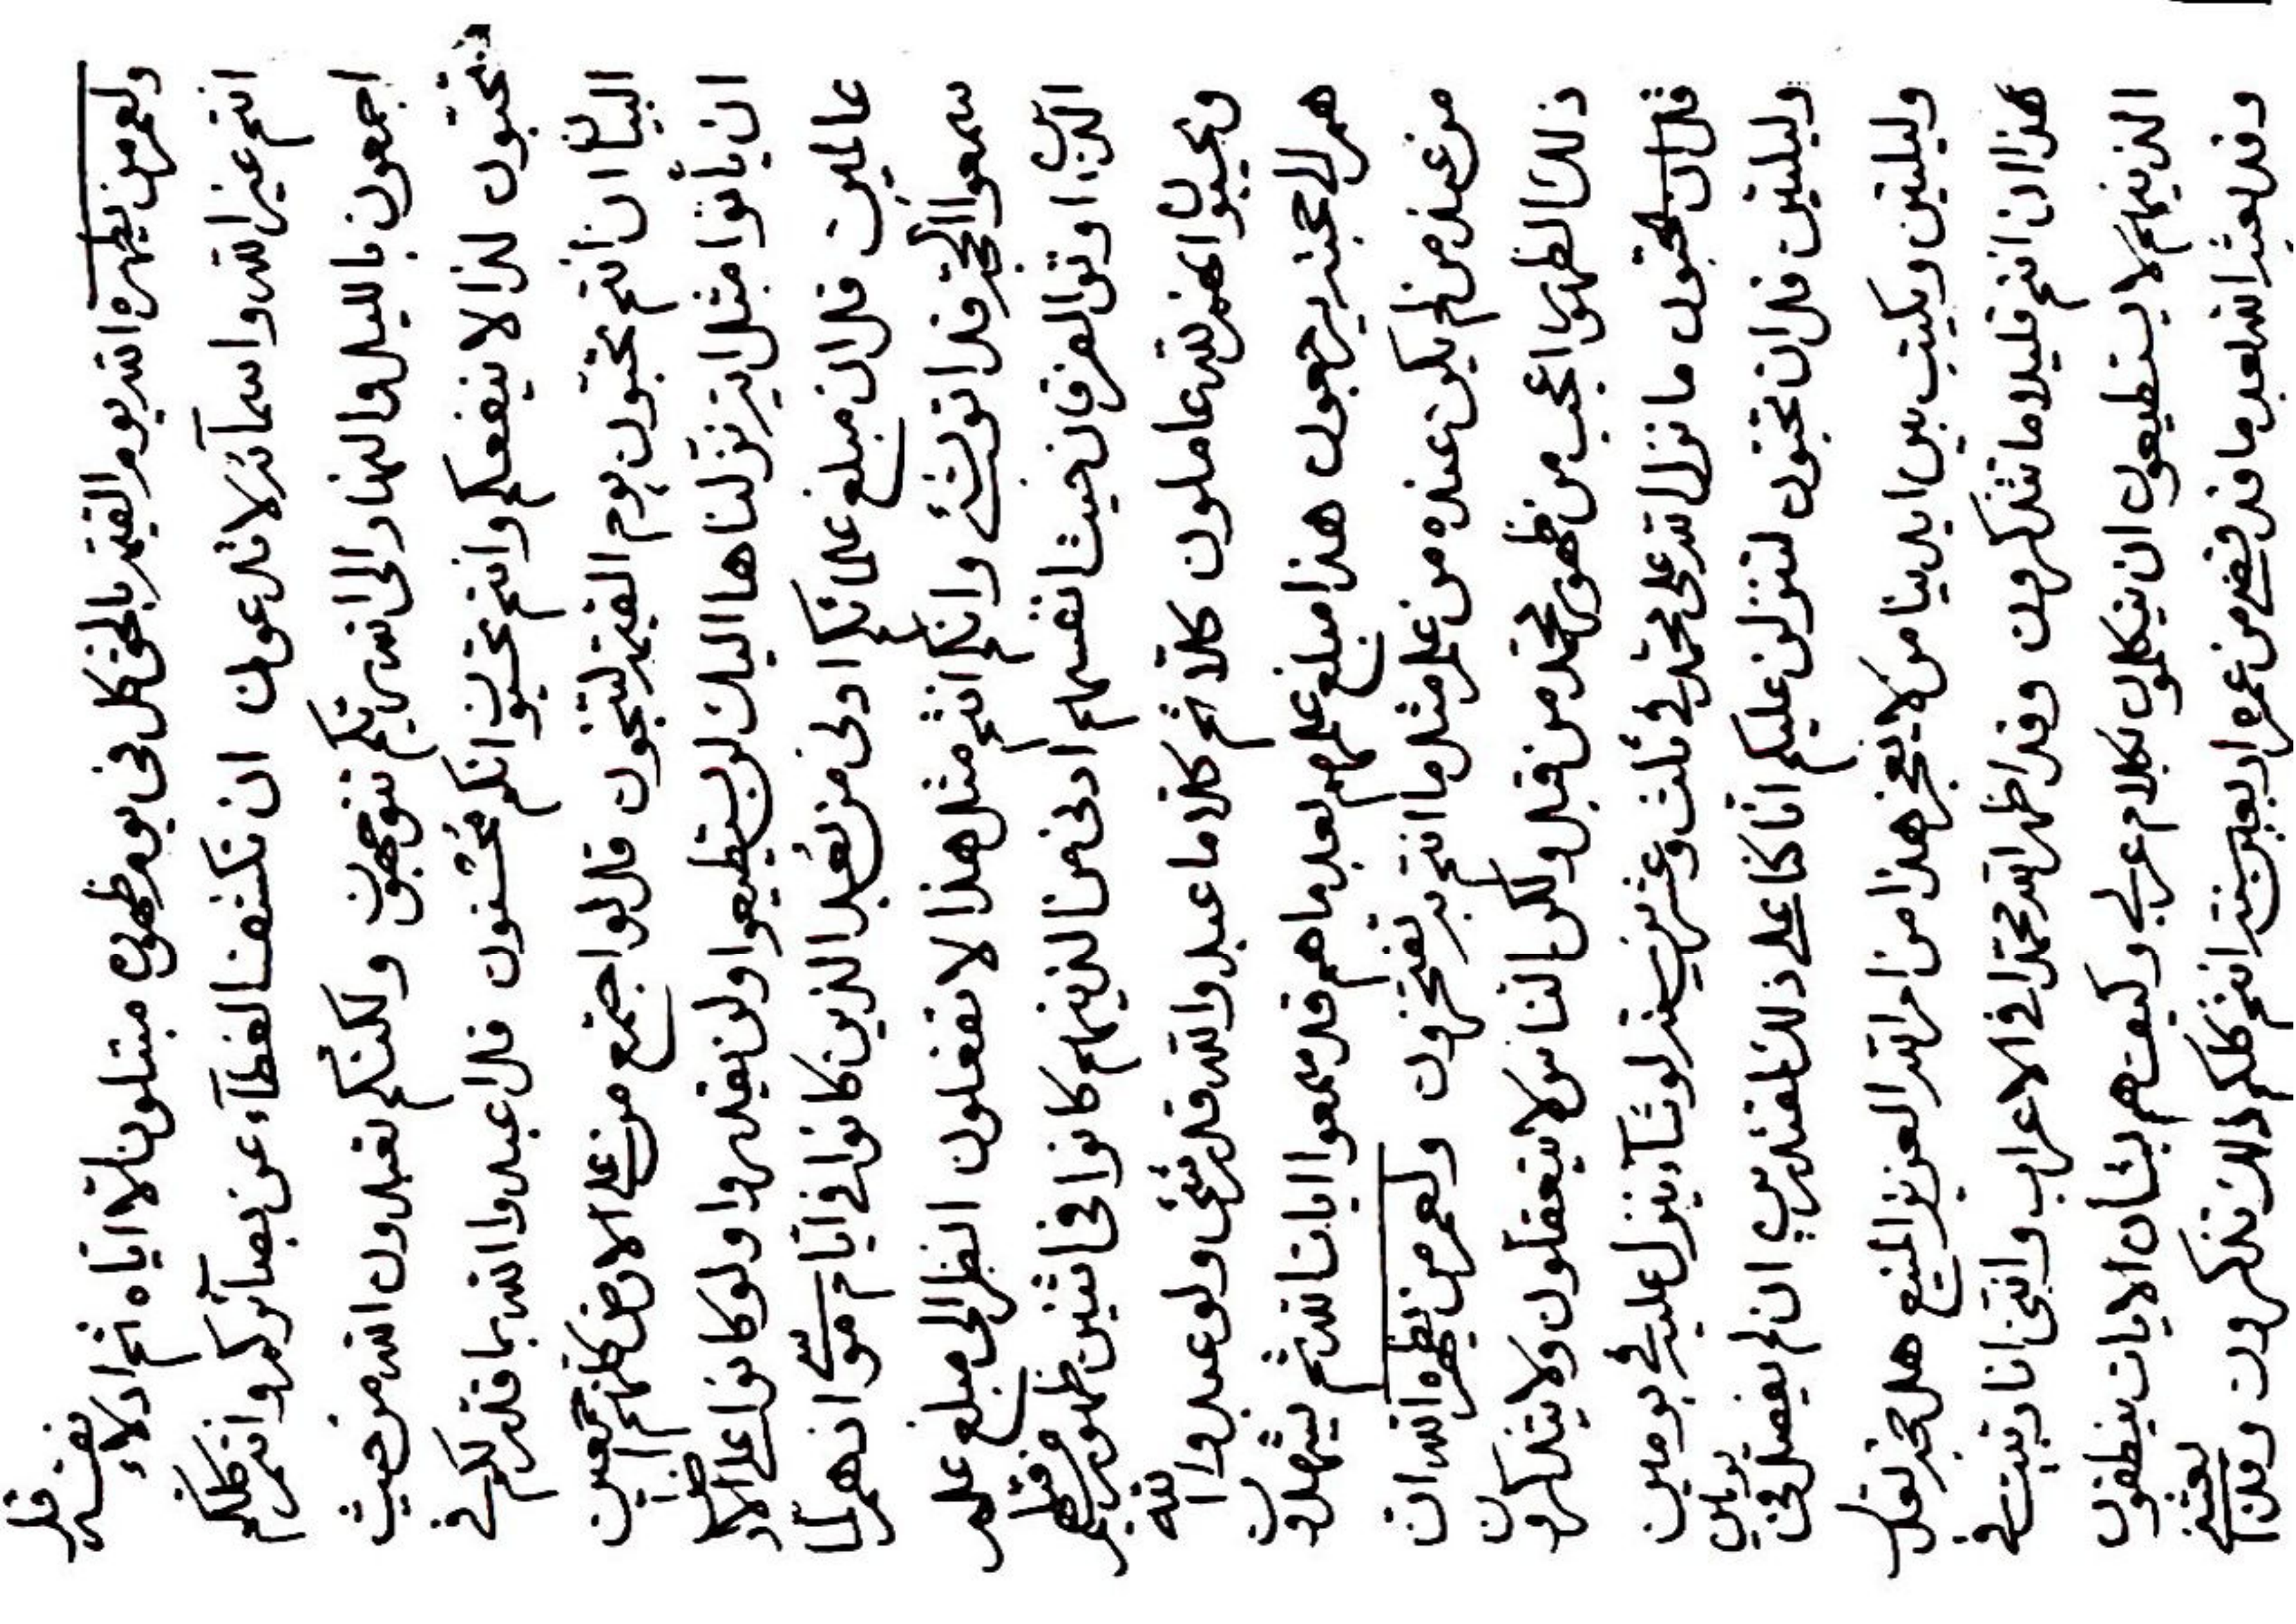 ولعمر من يظهره الله يوم القيمة بالحق كل فى يوم ظهوره مبتلون الا اياه ثم ادلاء نفسه قل
انتم غير الله واسمآئه لا تدعون ان نكشفنا الغطآء عن بصآئركم وانتم كلكم
اجمعون بالليل والنهار الى الله ربكم تتوجهون ولكنكم تعبدون الله من حيث
تحتجبون لذا لا ينفعكم وانتم تحسبون انكم محسنون قل اعبدوا الله بما قدر لكم في
البيان ان انتم تحبون يوم القيمة لتنجون قل لو اجتمع من على الارض كلهم اجمعين
ان ياتوا بمثل اية نزلناها اليك لن يستطيعوا ولن يقدروا ولو كانوا على الارض
عالمين قل ان مبلغ علمائكم ادنى من بعد الذين كانوا في ايام موسى انهم لما
سمعوا الحجة قد وانكم انتم مثل هذا لا تفعلون انظر الى مبلغ علم
الذين اوتوا الفرقان حيث انفسهم ادنى من الذينهم كانوا فى اثنين ظهور من قبلهم
ويحسبون انهم لله عاملون كلا ثم كلا ما عبدوا الله قدر شئ ولو عبدوا الله
هم الى حجته يرجعون هذا مبلغ علمهم بعد ما هم قد سمعوا ايات الله ثم يشهدون
من عند من لم يكن عنده من علم مثل ما انتم به تفتخرون ولعمر من يظهره الله ان
ذلك الظهور اعجب من ظهور محمد من قبل ولكن الناس لا يتعقلون ولا يتذكرون
قل ان تحبون ما نزل الله على محمد في ثلث وعشرين سنة لو شآء لينزل عليه في يومين
وليلتين قل ان تحبون لننزلن عليكم انا كنا على ذلك لمقتدرين ان لم يفصل في يومين
وليلتين ويكتب بين ايدينا من لا يعجز هذا من امر الله العزيز المنيع هل
هذا ان انتم قليلا ما تتذكرون وقد اظهر الله محمدا في الاعراب واننى انا ربيت في
الذينهم لا يستطيعون ان يتكلمون بكلام عربي وكيف هم بشان الايات ينطقون
وقد بعثه الله بعد ما قد قضى من عمره اربعين سنة انتم كلكم ذلك تذكرون وقد بعثنى